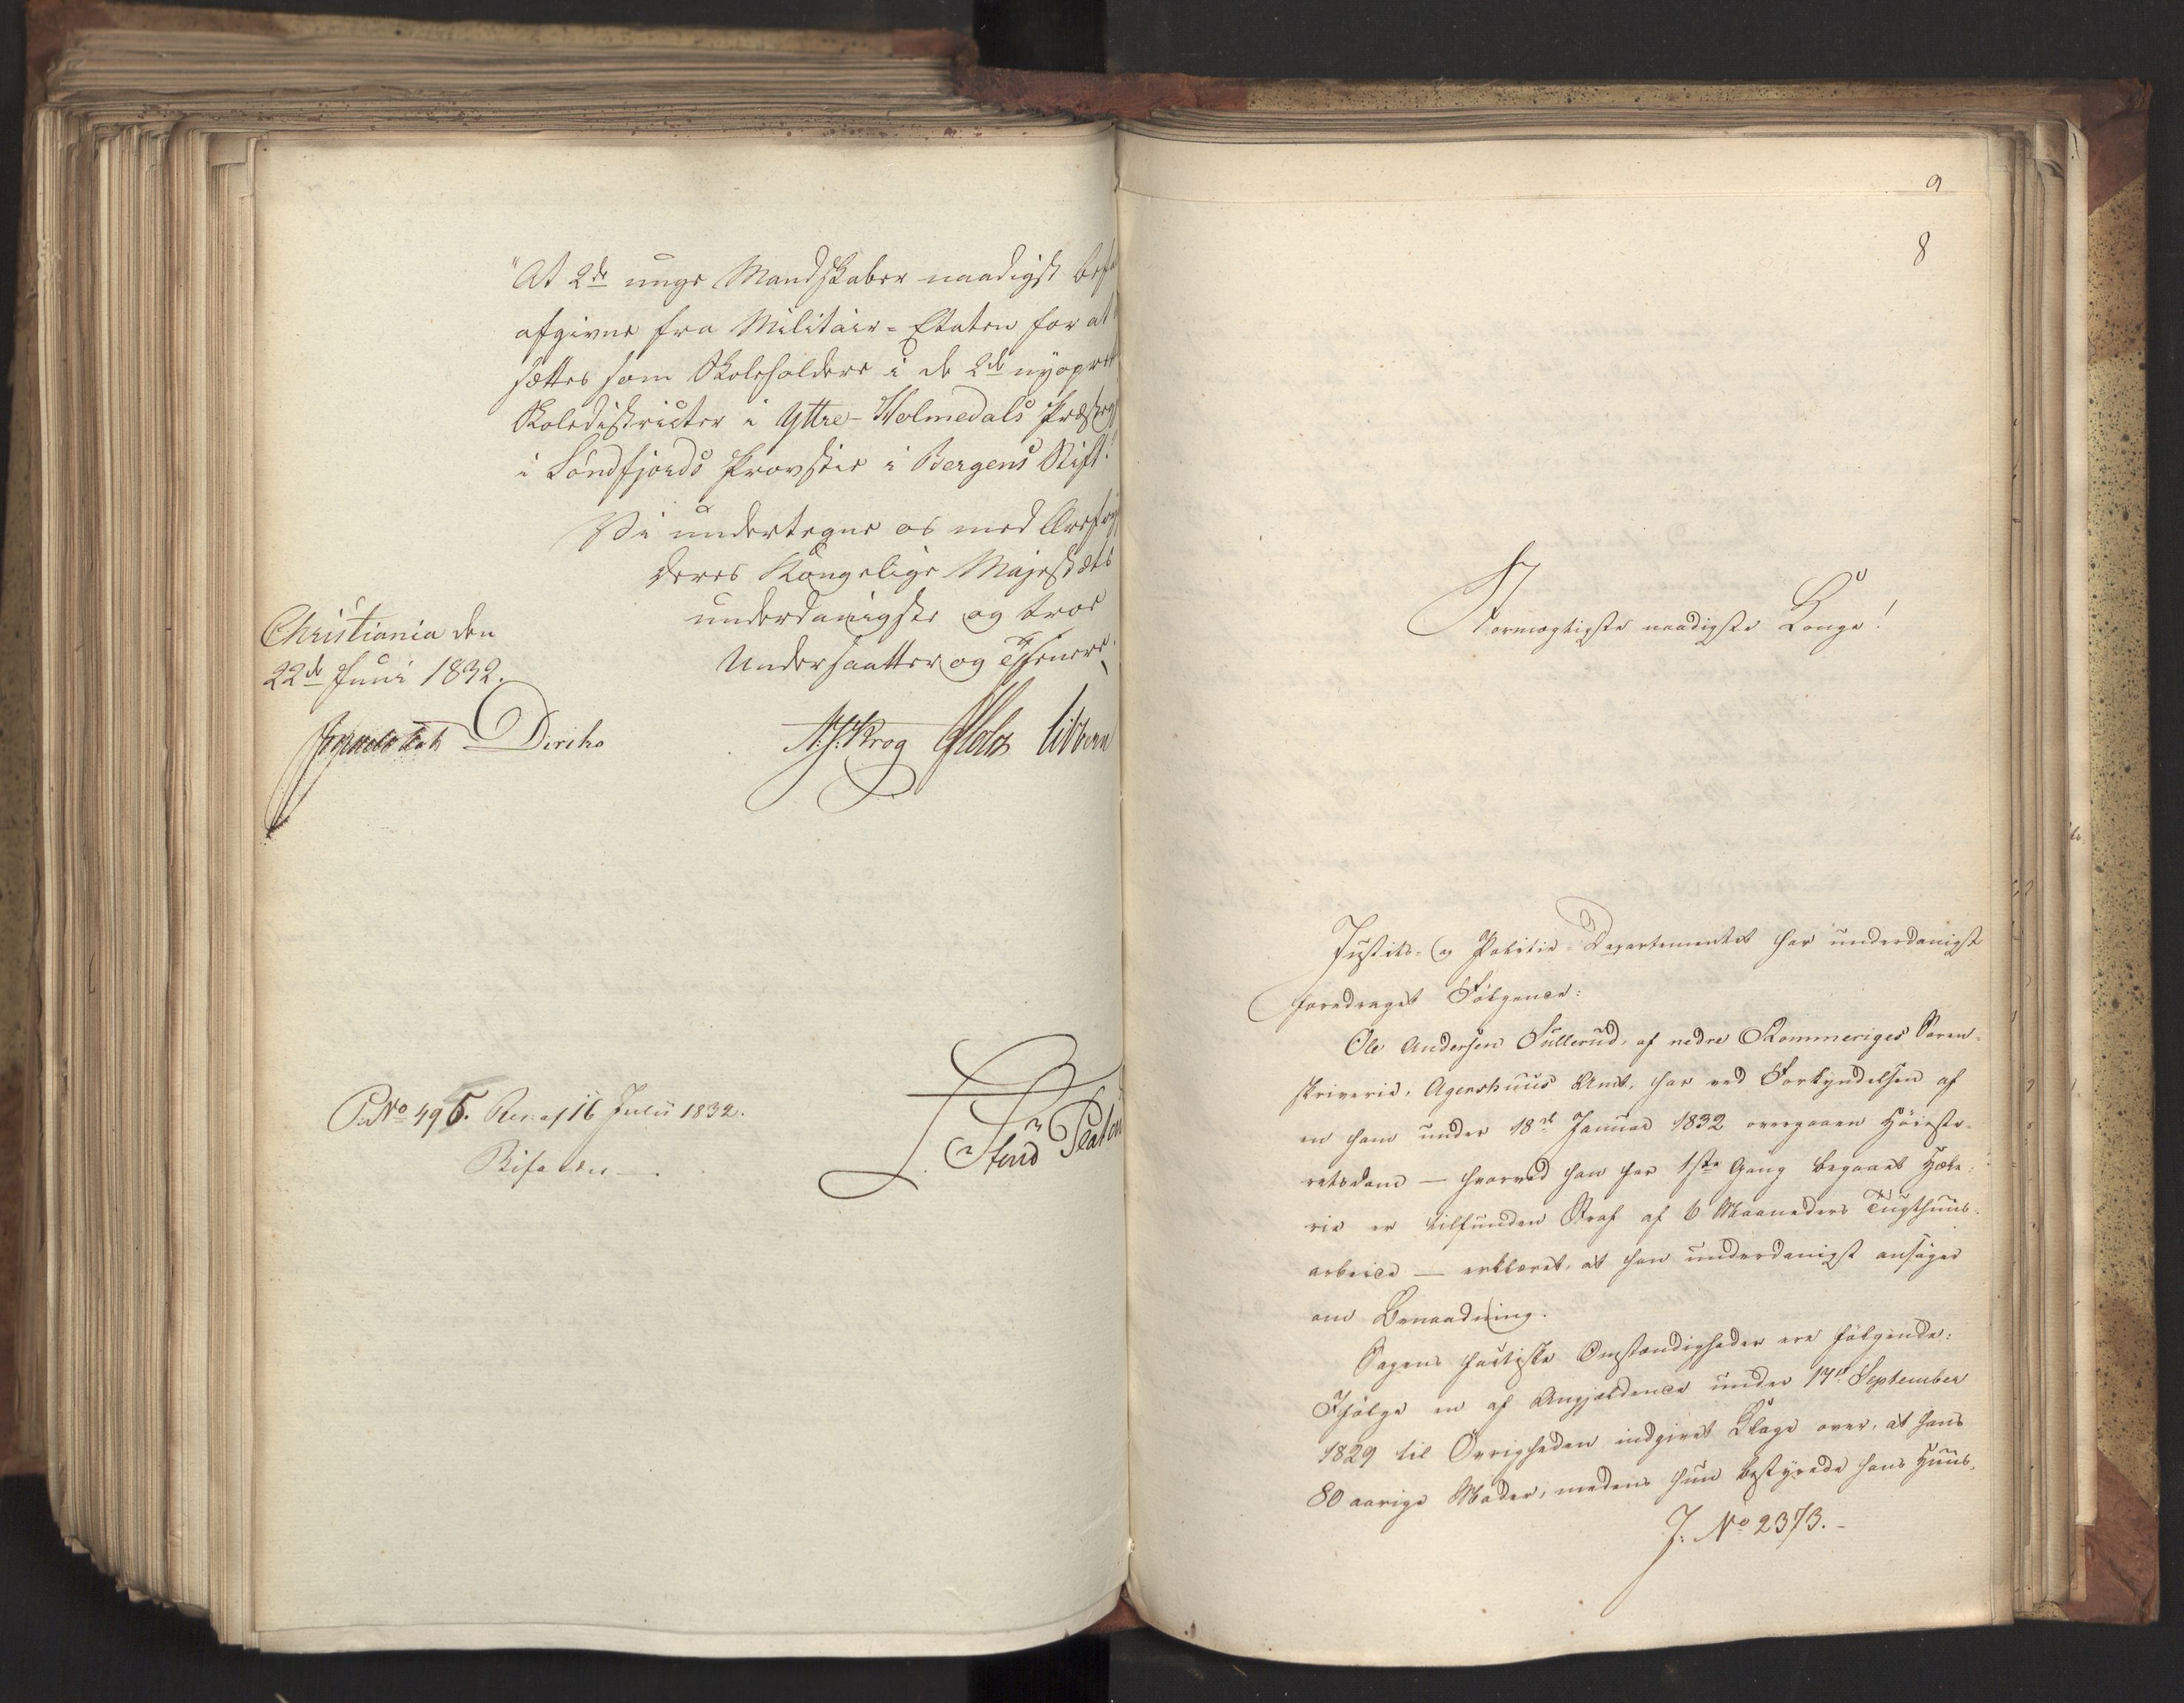 "At 2de unge Mandskaber naadigst
afgivne fra Militair-Etaten for at
sættes som Skoleholdere i de 2de
Skoledistricter i Yttre-Holmedals
i Söndfjords Provstie i Bergens Stift."
Vi undertegne os med
Deres Kongelige Majestæts
underdanigste og troe
Undersaatter og Tjenere.
Christiania den
22de Juni 1832.
Diriks
N. J. Krog Holst Sibbern
No 495. Res. af 16 Julii 1832.
Bifaldes
9
8
Stormægtigste naadigste Konge!
Justits- og Politie-Departementet har underdanigst
foredraget Fölgende:
Ole Andersen Sullerud, af nedre Rommeriges Soren-
skriverie, Agershuus Amt, har ved Forkyndelsen af
en ham under 18de Januar 1832 overgaaen Höieste-
retsdom — hvorved han for 1ste Gang begaaet Hæle-
rie er tilfunden Straf af 6 Maaneders Tugthuus-
arbeide — erklæret, at han underdanigst ansöger
om Benaadning.
Sagens factiske Omstændigheder ere fölgende:
Ifölge en af Angjældende under 17de September
1829 til Övrigheden indgivet Klage over, at hans
80 aarige Moder, medens hun bestyrede hans Huus-
J. No 2373.